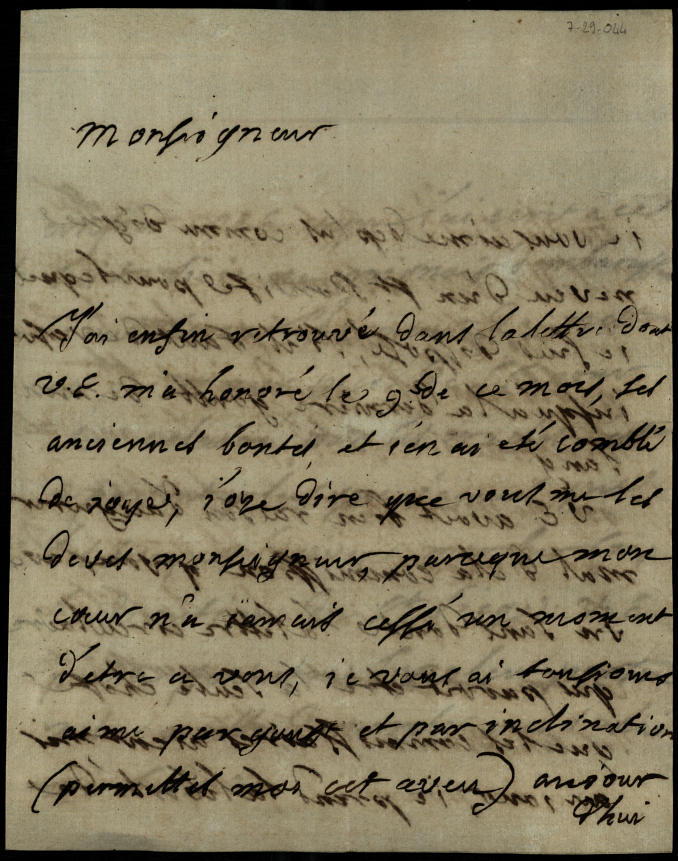 7-29-044
Monsigneur
J'ai enfin retrouvé dans la lettre dont
V.E. m'a honoré le 9 de ce mois, ses
anciennes bontés, et j'en ai eté comblé
de joye, j'ose dire que vous me les
devés monsigneur, parceque mon
cœur n'a jamais cessé un moment
d'etre a vous, je vous ai toujours
aimé par goust et par inclination
(permettés moi cet aveu) aujour
d'hui